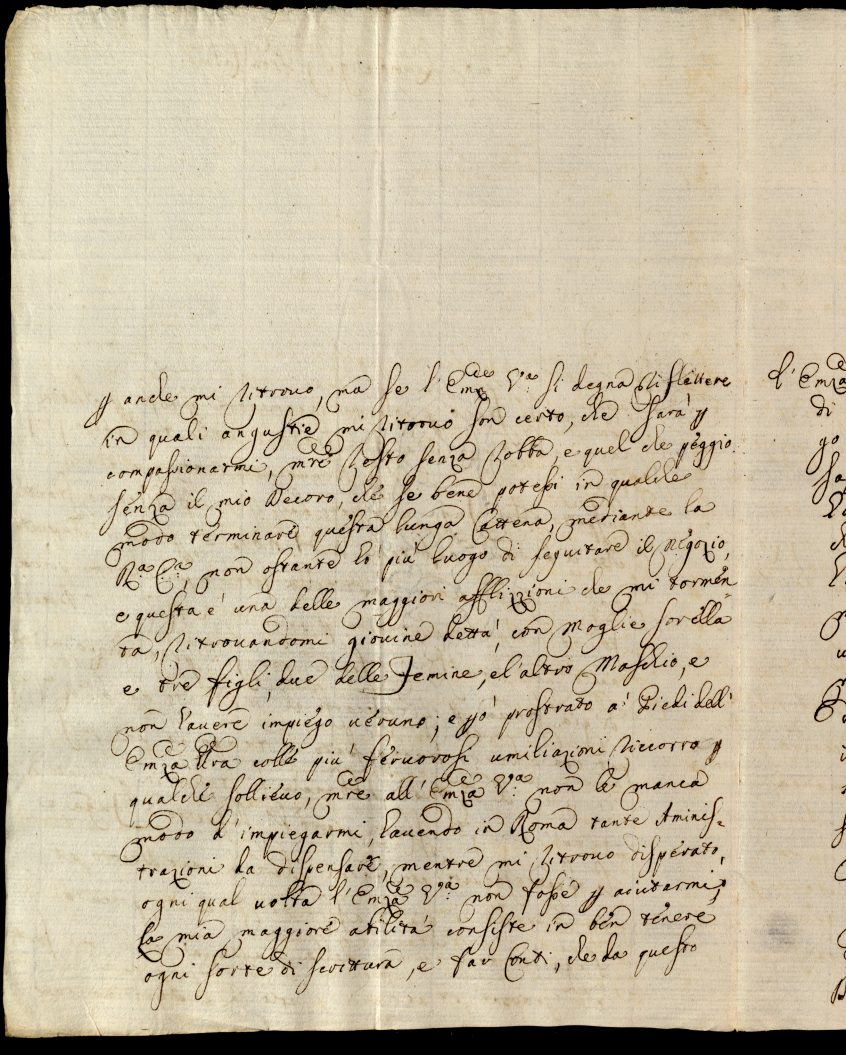 p anche mi ritrovo, ma se l'Emza Va si degna riflettere
in quali angustie mi ritrovo son certo, che sarà p
compassionarmi, mre resto senza robba, e quel che péggio
senza il mio Decoro, che se bene potessi in qualche
modo terminare questa lunga Cattena, mediante la
Ra Ca, non ostante lò più luogo di seguitare il negozio,
e questa é una delle maggiori afflizzioni che mi tormen
ta, ritrovandomi giovine d'ettà, con Moglie sorella
e tre figli, due delle Femine, e l'altro Maschio, e
non havere impiego veruno; e pò prostrato a' Piedi dell'
Emza Vra colle più fervorosi umiliazioni riccorro p
qualche sollievo, mre all'Emza Va non le manca
modo d'impiegarmi, havendo in Roma tante Aminis-
trazioni da dispensare, mentre mi ritrovo disperato,
ogni qual volta l'Emza Va non fosse p aiutarmi;
La mia maggiore abilità consiste in ben tenere
ogni sorte di scrittura, e far Conti, che da questo
l'Emza
di
go